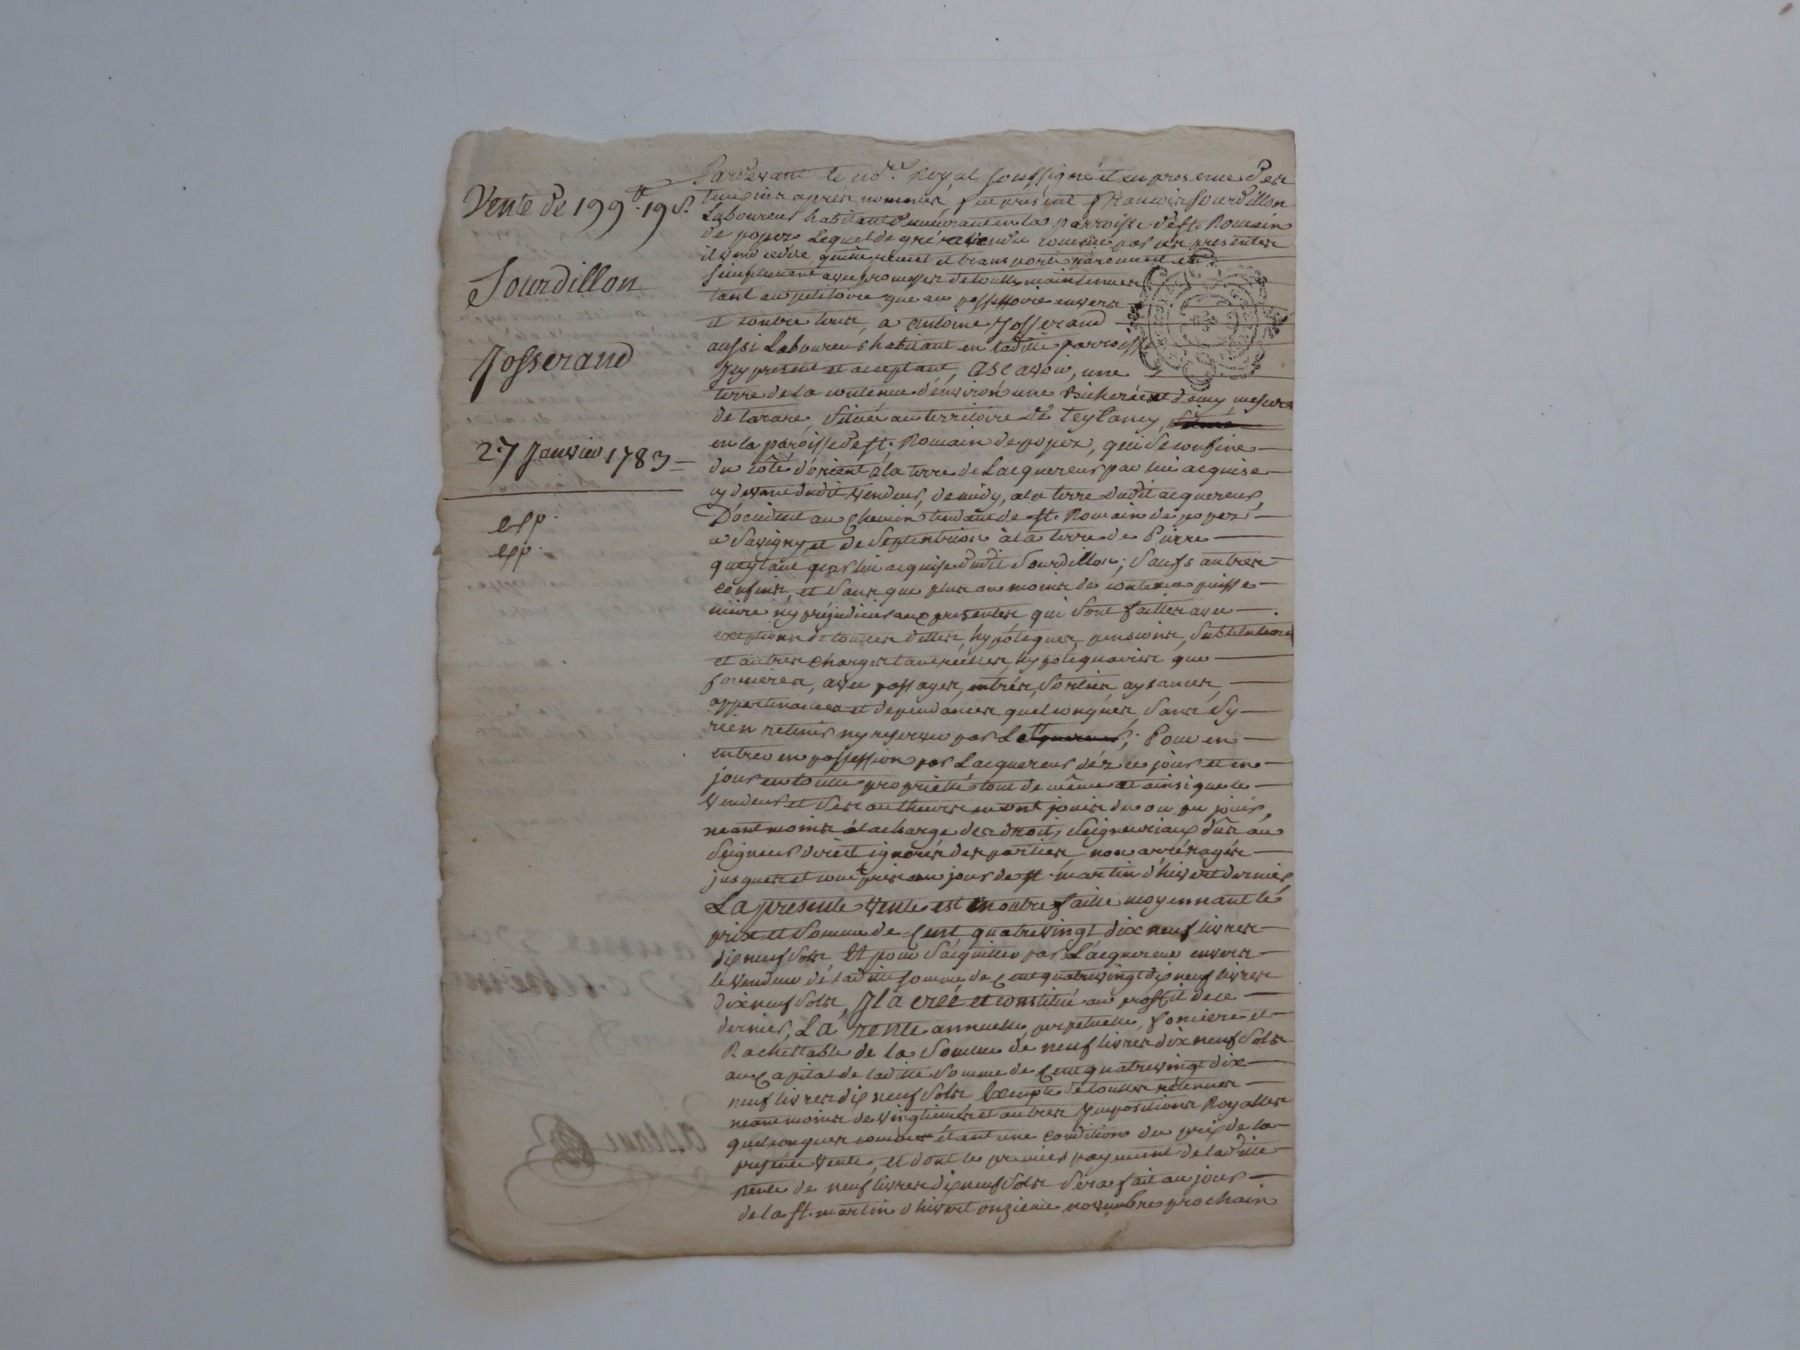 Vente de 199.tt 19 s.
Sourdillon
Josserand
27 Janvier 1783
exp.
exp.
Pardevant le no.re Royal soussigné et en presence des
temoins après nommés, fut présent francois sourdillon
Laboureur habitant demeurant en la parroisse de st. Romain
de popez Lequel de gré a vendu comme par ces presentes
il vend cede, quitte remet et transporte purement et
simplement avec promesses de toutes maintenues
tant au petitoire que au possessoire envers
et contre tous, a antoine Josserand
aussi Laboureur habitant en ladite parroisse
Icy present et acceptant, ascavoir, une
terre de la contenue d'environ une Bicherée et demy mesure
de tarare, située au territoire de
en la paroisse de st. Romain de popez, qui se confine
du côté d'orient à la terre de Lacquereur par lui acquise
cy devant dudit vendeur, de midy, a la terre dudit acquereur,
D'occident au chemin tendant de st. Romain de popez
a Savigny et de Septentrion à la terre de Pierre
par lui acquise dudit Sourdillon; Saufs autres
confins, et sans que plus ou moins de contenue puisse
nuire ny prejudicier aux presentes qui sont faittes avec
exceptions de touttes dettes, hypoteques, pensions, substitutions
et autres charges tant réelles, hypotequaires que
foncieres, avec passages, entrées, sorties, aysances,
appartenances et dependances quelconques, sans sy
rien retenir ny reserver par Le ; Pour en
entrer en possession par Lacquereur déz ce jour et en
jouir en toutte propriété tout de même et ainsi que le
vendeur et ses autheurs en ont jouis du ou pu jouir,
neantmoins à la charge des droits Seigneuriaux dûs au
Seigneur direct ignorés des parties non arréragés
jusques et compris au jour de st. martin d'hivert dernier
La presente vente est en outre faitte moyennant le
prix et somme de Cent quatrevingt dix neuf livres
dix neuf sols, Et pour s'acquitter par L'acquereur envers
le vendeur de ladite somme de Cent quatrevingt dix neuf livres
dix neuf sols, Il a créé et constitué au proffit de ce
dernier, La rente annuelle, perpetuelle, fonciere et
Rachettable de la somme de neuf livres dix neuf sols
au Capital de laditte somme de Cent quatrevingt dix
neuf livres dix neuf sols Exempte de touttes retenues
neantmoins de vingtiemes et autres Impositions Royalles
quelconques comme étant une condition du prix de la
presente vente, et dont le premier payement de laditte
rente de neuf livres dix neuf sols sera fait au jour
de la st. martin d'hivert onzieme novembre prochain